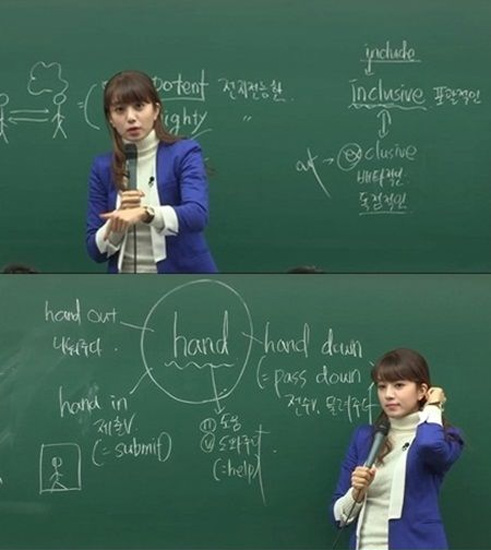 include
Inclusive 포괄적인
potent 전지전능한
ighty 〃
out ← exclusive
배타적인
독점적인
hand out
나눠주다.
hand
hand down
(= pass down
전수, 물려주다
hand in
제출
(= submit)
ⓝ 도움
ⓥ 도와주다
(= help)